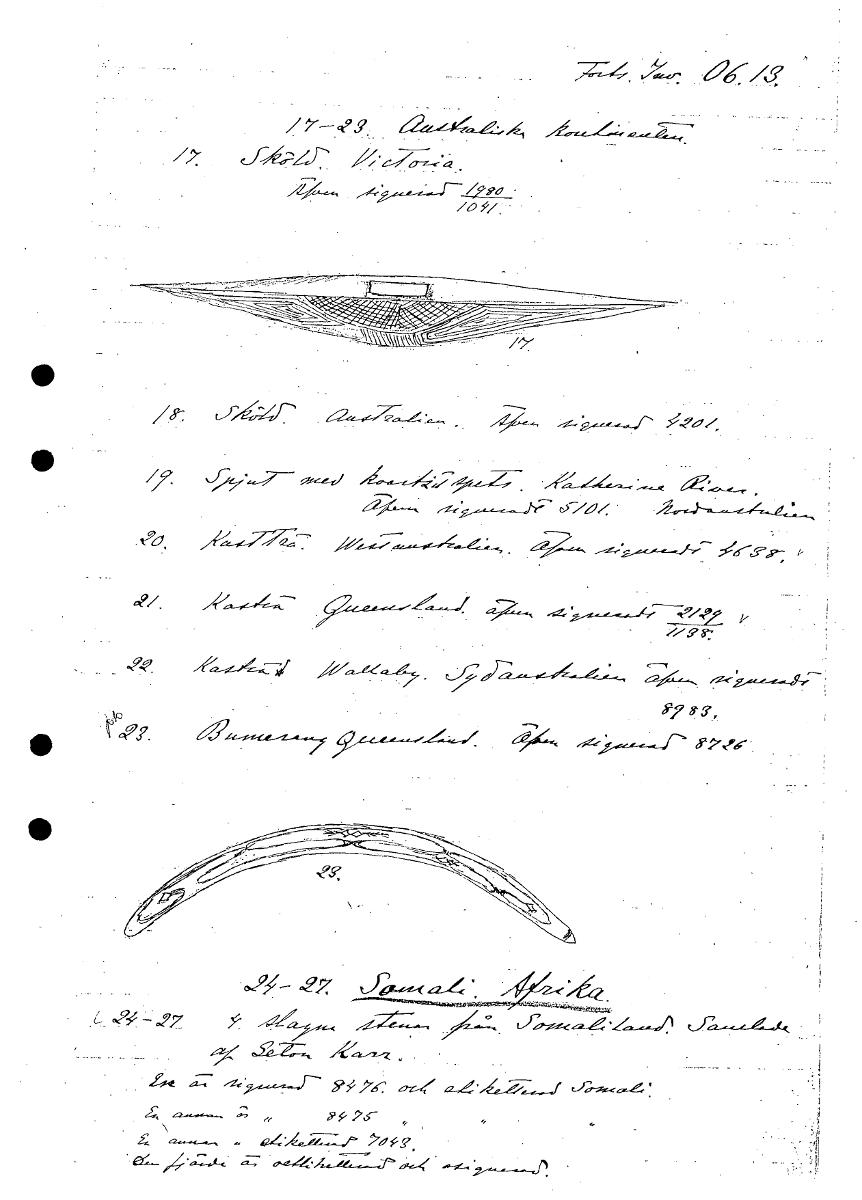 Forts. Inv. 06.13.
17-23. Australiska kontinenten.
17. Sköld. Victoria.
Äfven signerad 1980
1041.
17.
18. Sköld. Australien. Äfven signerad 4201.
19. Spjut med kvartsitspets. Katherine River.
Äfven signeradt 5101. Nordaustralien
20. Kastträ. Westaustralien. Äfven signeradt 4638.
21. Kastträ Queensland. äfven signeradt 2129
1138.
22. Kastträ Wallaby. Sydaustralien äfven signeradt
8983.
23. Bumerang Queensland. Äfven signerad 8726
23.
24-27. Somali. Afrika.
24-27 4 slagna stenar från Somaliland. Samlade
af Seton Karr.
En är signerad 8476. och etiketterad Somali.
En annan är " 8475 " " "
En annan " etiketterad 7043.
Den fjärde är oetiketterad och osignerad.